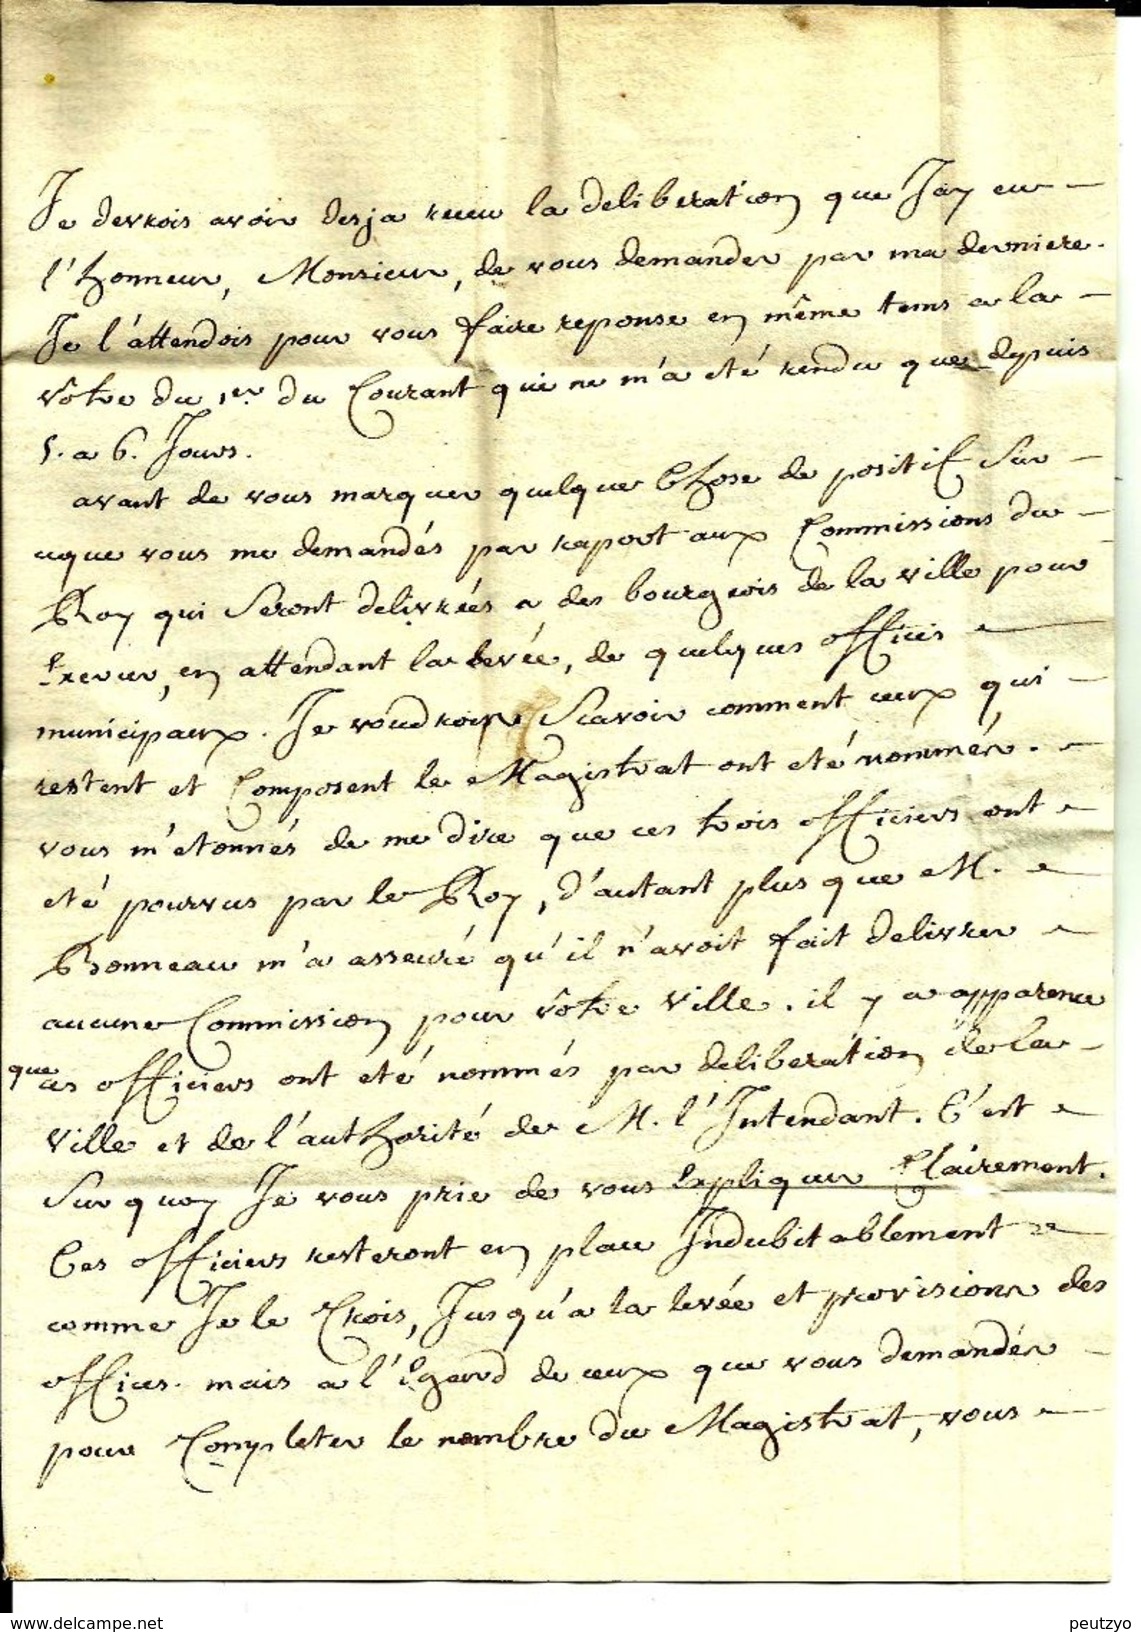 Je devrois avoir desja receu la deliberation que J'ay eu
l'honneur, Monsieur, de vous demander par ma derniere.
Je l'attendois pour vous faire reponse en même tems a la
vôtre du 1er du Courant qui ne m'a eté rendu que depuis
5. a 6. Jours.
avant de vous marquer quelque Chose de positif Sur
ceque vous me demandés par raport aux Commissions du
Roy qui Seront delivrées a des bourgeois de la ville pour
Exercer, en attendant la levée, de quelques offices
municipaux. Je voudrois Scavoir comment ceux qui
restent et Composent le Magistrat ont eté nommés.
vous m'etonnés de me dire que ces trois officiers ont
eté pourvus par le Roy, d'autant plus que M.
Bonneau m'a asseuré qu'il n'avoit fait delivrer
aucune Commission pour vôtre Ville. il y a apparence
que ces officiers ont eté nommés par deliberation de la
Ville et de l'authorité de M. l'Intendant. C'est
Sur quoy Je vous prie de vous Expliquer Clairement.
Ces officiers resteront en place Indubitablement
comme Je le Crois, Jusqu'a la levée et provisions des
offices. mais a l'Egard de ceux que vous demandés
pour Completer le nombre du Magistrat, vous
delcampe.net
peutzyo